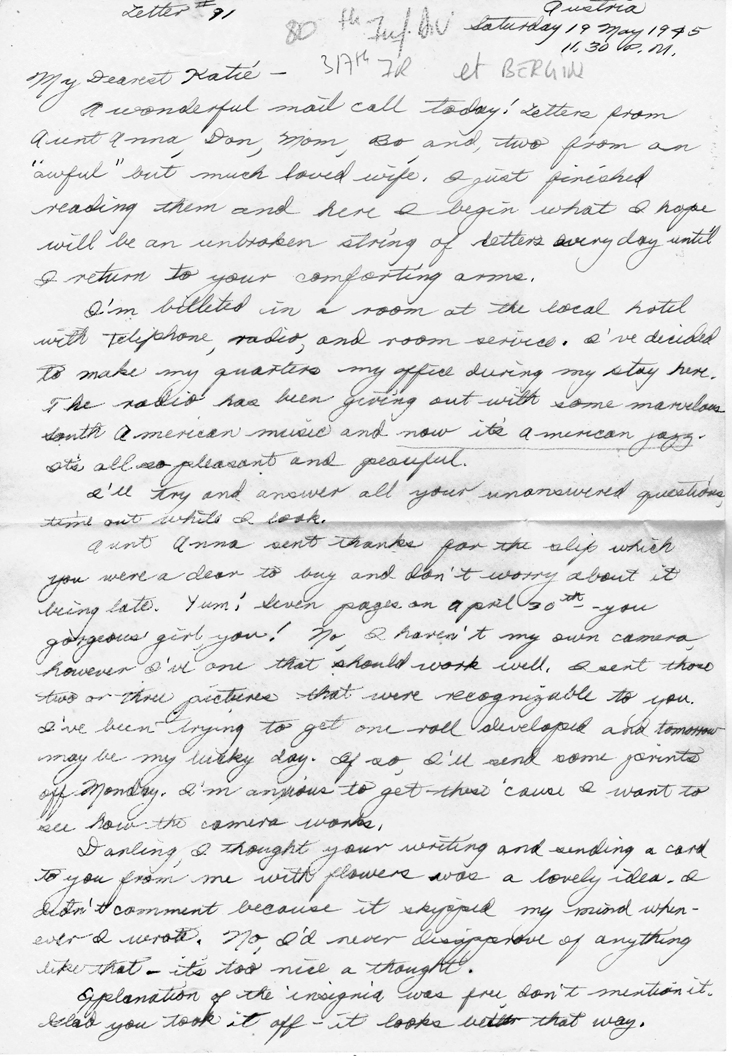 Letter #91
Austria
Saturday 19 May 1945
11.30 P.M.
80th Inf. Div
317th IR et BERGIN
My Dearest Katie —
A wonderful mail call today! Letters from
Aunt Anna, Don, Mom, Bo, and, two from an
"awful" but much loved wife. I just finished
reading them and here I begin what I hope
will be an unbroken string of letters every day until
I return to your comforting arms.
I'm billeted in a room at the local hotel
with telephone, radio, and room service. I've decided
to make my quarters my office during my stay here.
The radio has been giving out with some marvelous
South American music and now it's American jazz.
It's all so pleasant and peaceful.
I'll try and answer all your unanswered questions,
time out while I look.
Aunt Anna sent thanks for the slip which
you were a dear to buy and don't worry about it
being late. Yum! Seven pages on April 30th - you
gorgeous girl, you! No, I haven't my own camera,
however I've one that should work well. I sent those
two or three pictures that were recognizable to you.
I've been trying to get one roll developed and tomorrow
may be my lucky day. If so, I'll send some prints
off Monday. I'm anxious to get these 'cause I want to
see how the camera works.
Darling, I thought your writing and sending a card
to you from me with flowers was a lovely idea. I
didn't comment because it skipped my mind when-
ever I wrote. No, I'd never disapprove of anything
like that — it's too nice a thought.
Explanation of the insignia was free, don't mention it.
Glad you took it off — it looks better that way.